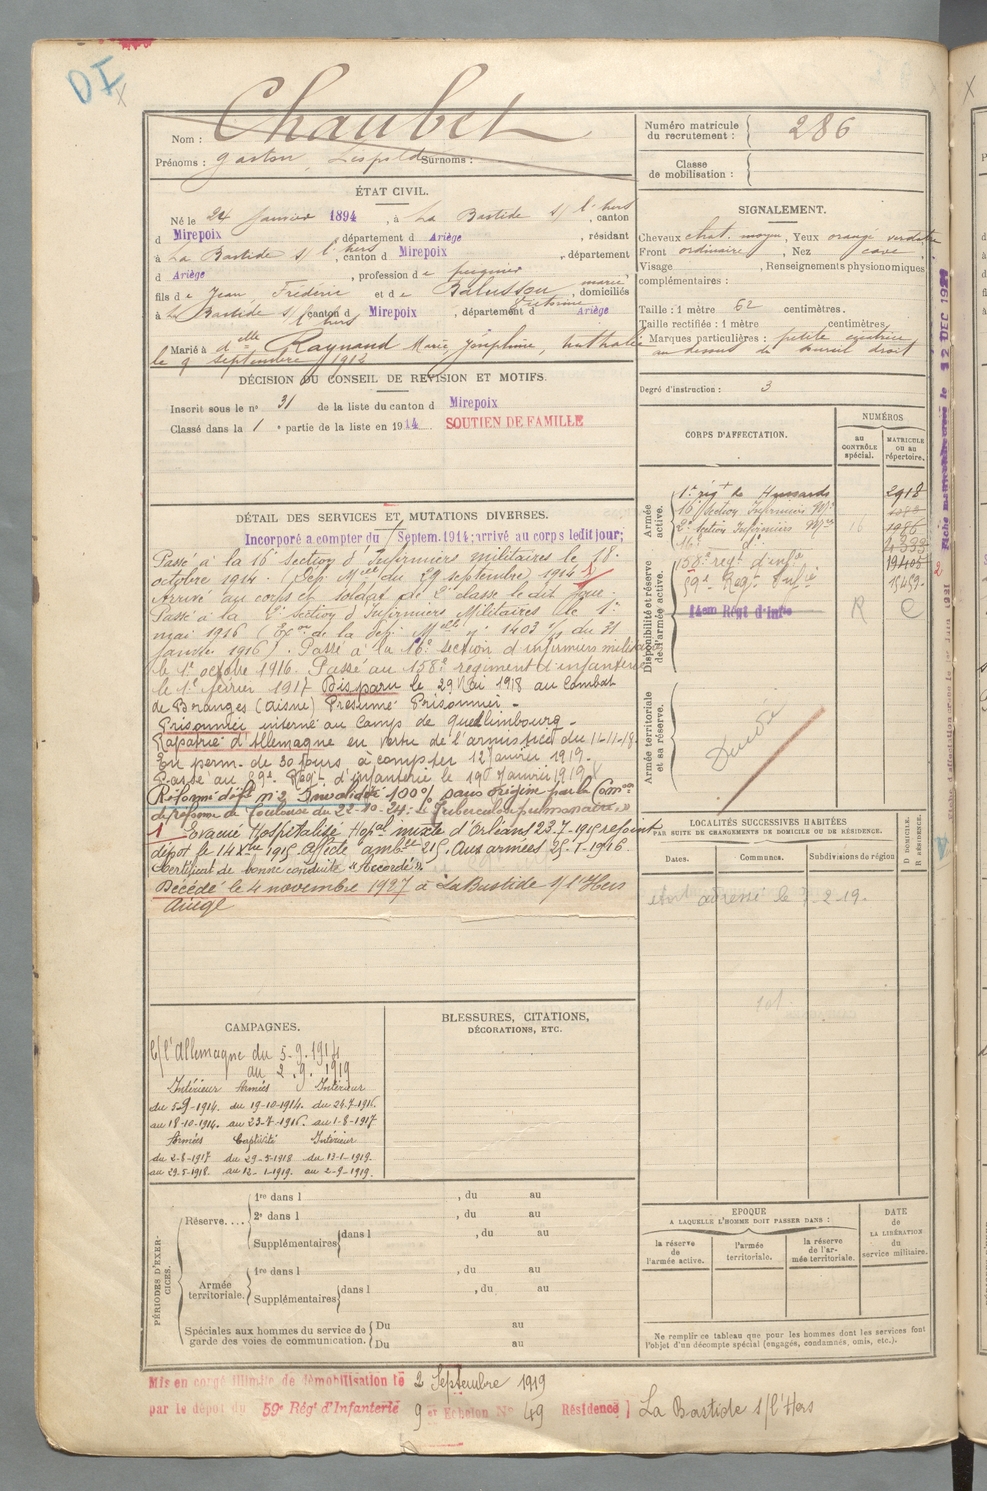 DI
Nom : Chaubet
Prénoms : Gaston, Léopold Surnoms :
Numéro matricule du recrutement : 286
Classe de mobilisation :
ÉTAT CIVIL.
Né le 24 Janvier 1894, à La Bastide s/ l'hers, canton
d Mirepoix, département d Ariège, résidant
à La Bastide s/ l'hers, canton d Mirepoix, département
d Ariège, profession de peignier
fils de Jean Frédéric et de Balussou marie Victorine, domiciliés
à La Bastide s/ l'hers canton d Mirepoix, département d Ariège
Marié à delle Raynaud Marie, Joséphine, Nathalie
le 9 septembre 1912
DÉCISION DU CONSEIL DE REVISION ET MOTIFS.
Inscrit sous le no 31 de la liste du canton d Mirepoix
Classé dans la 1e partie de la liste en 1914 SOUTIEN DE FAMILLE
SIGNALEMENT.
Cheveux chat. moyen, Yeux orangé verdâtre
Front ordinaire, Nez cave
Visage , Renseignements physionomiques
complémentaires :
Taille : 1 mètre 62 centimètres.
Taille rectifiée : 1 mètre centimètres.
Marques particulières : petite cicatrice
au dessus du sourcil droit
Degré d'instruction : 3
DÉTAIL DES SERVICES ET MUTATIONS DIVERSES.
Incorporé a compter du Septem. 1914; arrivé au corps ledit jour;
Passé à la 16e Section d'Infirmiers militaires le 18
octobre 1914. (Dép. Mlle du 29 septembre 1914) 1
Arrivé au corps et soldat de 2e classe le dit jour.
Passé à la 2e section d'Infirmiers Militaires le 1er
mai 1916 (Exon de la dép. Mlle n° 1403 du 31
Janvier 1916). Passé à la 16e section d'infirmiers militaires
le 1er octobre 1916. Passé au 158e régiment d'infanterie
le 1er février 1917 Disparu le 29 Mai 1918 au Combat
de Branges (Aisne) Présumé Prisonnier -
Prisonnier interné au Camp de Quedlimbourg -
Rapatrié d'Allemagne en vertu de l'armistice du 11-11-18.
En perm. de 30 jours à compter 12 Janvier 1919.
Passé au 59e Régt d'infanterie le 19 Janvier 1919.
Réformé déft n° 2 Invalidité 100% sans origine par la Comon
de réforme de Toulouse du 22-10-24. "Tuberculose pulmonaire"
1 Evacué Hospitalisé Hopal mixte d'Orléans 23-7-1915 rejoint
dépôt le 14 Xbre 1915. Affecté ambce 215. Aux armées 25-1-1916.
Certificat de bonne conduite "Accordé"
Décédé le 4 novembre 1927 à La Bastide s/ l'Hers
Ariège
CORPS D'AFFECTATION.
NUMÉROS
au CONTRÔLE spécial.
MATRICULE ou au répertoire.
Armée active.
1er régt de Hussards 2918
16e Section Infirmiers Mres
2e Section Infirmiers Mres 16 1986
16e do 4333
Disponibilité et réserve de l'armée active.
158e régt d'infie 19405
59e Régt Infie 15459
14eme Régt d'Infie R C
Armée territoriale et sa réserve.
Décédé
LOCALITÉS SUCCESSIVES HABITÉES
PAR SUITE DE CHANGEMENTS DE DOMICILE OU DE RÉSIDENCE.
Dates. Communes. Subdivisions de région
D DOMICILE. R RÉSIDENCE.
adressé le 2-19.
CAMPAGNES.
C/ l'Allemagne du 5-9-1914
au 2-9-1919
Intérieur Armées Intérieur
du 5-9-1914. du 19-10-1914. du 24-7-1916.
au 18-10-1914. au 23-7-1916. au 1-8-1917
Armées Captivité Intérieur
du 2-8-1917 du 29-5-1918 du 13-1-1919.
au 29-5-1918. au 12-1-1919. au 2-9-1919.
BLESSURES, CITATIONS,
DÉCORATIONS, ETC.
PÉRIODES D'EXERCICES.
Réserve....
1re dans l , du au
2e dans l , du au
Supplémentaires dans l , du au
Armée territoriale.
1re dans l , du au
Supplémentaires dans l , du au
Spéciales aux hommes du service de garde des voies de communication.
Du au
Du au
EPOQUE
A LAQUELLE L'HOMME DOIT PASSER DANS :
la réserve de l'armée active.
l'armée territoriale.
la réserve de l'armée territoriale.
DATE de LA LIBÉRATION du service militaire.
Ne remplir ce tableau que pour les hommes dont les services font
l'objet d'un décompte spécial (engagés, condamnés, omis, etc.).
Mis en congé illimité de démobilisation le 2 Septembre 1919
par le dépôt du 59e Régt d'Infanterie 9e Echelon No 49 Résidence La Bastide s/l'Hers